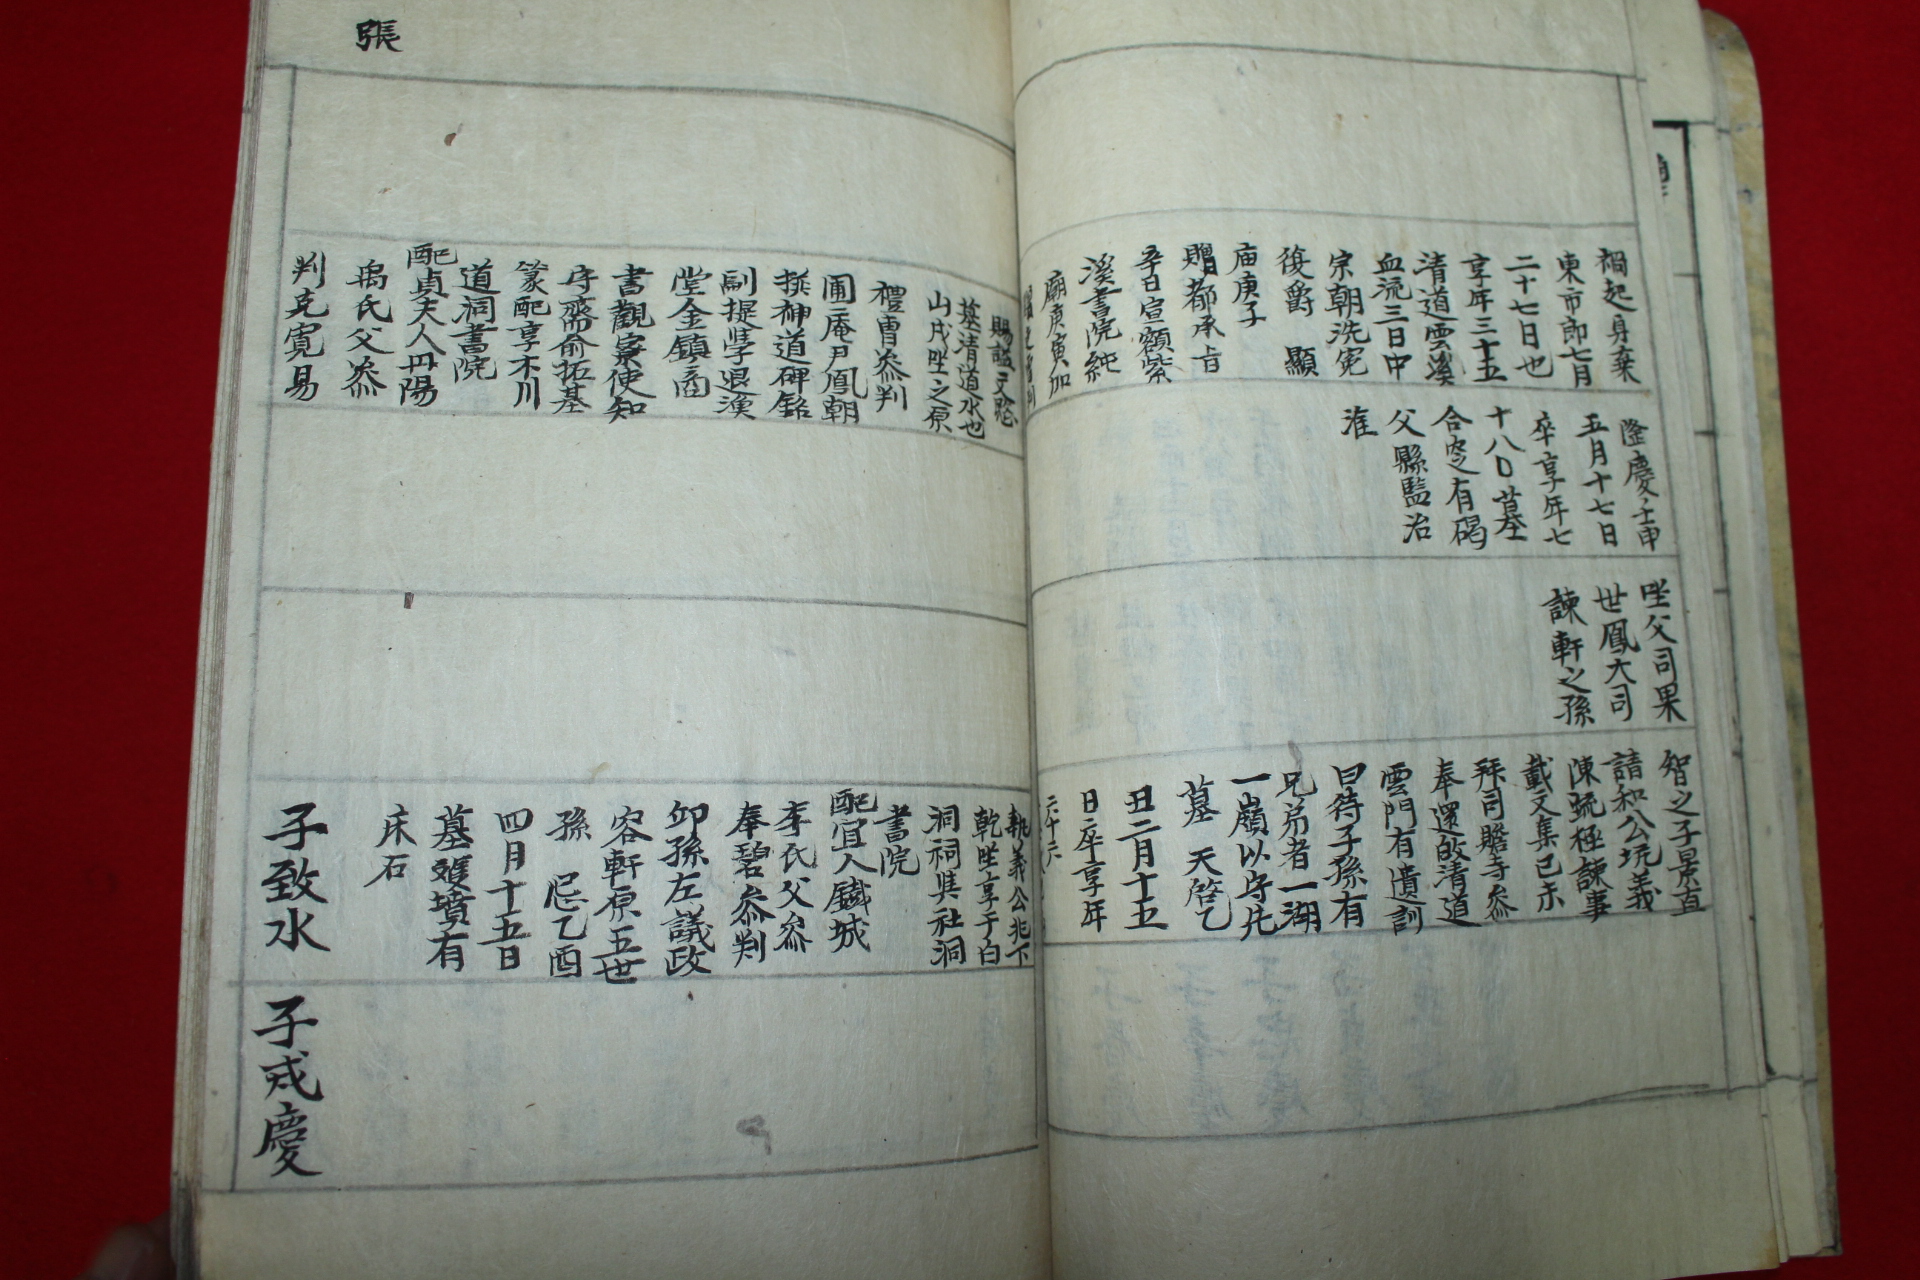 禍起身棄
東市即七月
二十七日也
享年三十五
清道雲溪
血流三日中
宗朝洗寃
復爵 顯
庙庚子
贈都承旨
辛日宣額紫
溪書院純
廟庚寅加
隆慶壬申
五月十七日
卒享年七
十八墓
合窆有碣
父縣監治
淮
坐父司果
世鳳大司
諫軒之孫
智之子景直
請和公抗義
陳疏極諫事
載文集己未
拜司贍寺參
奉還故清道
雲門有遺訓
曰待子孫有
兄弟者一湖
一嶺以守先
墓 天啓乙
丑二月十五
日卒享年
六十六
張
賜諡文愍
墓清道水也
山戌坐之原
禮曹參判
圃庵尹鳳朝
撰神道碑銘
副提學退漁
堂金鎮商
書觀察使知
守齋俞拓基
篆配享木川
道洞書院
配貞夫人丹陽
禹氏父參
判克寬易
執義公兆下
乾坐享于白
洞祠與社洞
書院
配宜人鐵城
李氏父參
奉碧參判
卯孫左議政
容軒原五世
孫 忌乙酉
四月十五日
墓雙墳有
床石
子致水
子戎慶